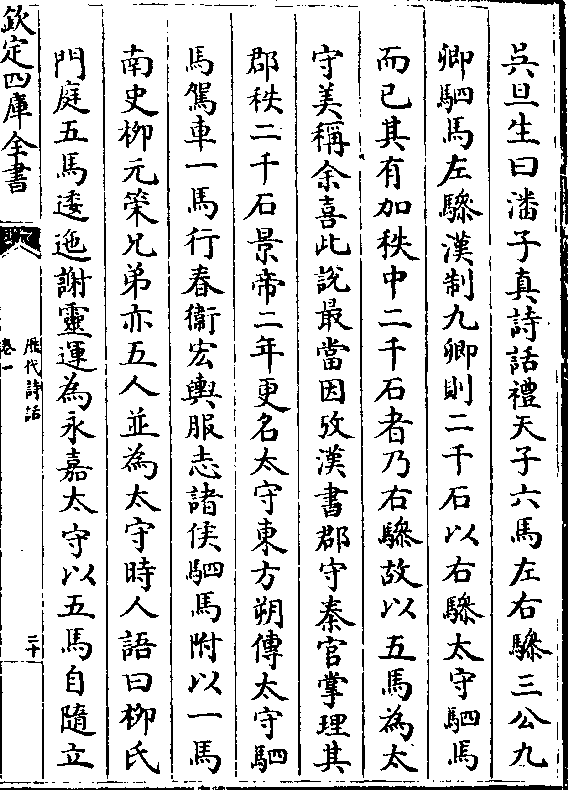 吳旦生曰潘子真詩話禮天子六馬左右驂三公九
卿駟馬左驂漢制九卿則二千石以右驂太守駟馬
而已其有加秩中二千石者乃右驂故以五馬為太
守美稱余喜此說最當因攷漢書郡守秦官掌理其
郡秩二千石景帝二年更名太守東方朔傳太守駟
馬駕車一馬行春衞宏輿服志諸侯駟馬附以一馬
南史柳元策兄弟亦五人並為太守時人語曰柳氏
門庭五馬逶迤謝靈運為永嘉太守以五馬自隨立
欽定四庫全書
歷代詩話
卷一
二十